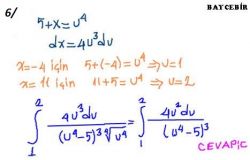 BAYCEBİR
6/
5+x=u⁴
dx=4u³du
x=-4 için 5+(-4)=u⁴ ⇒u=1
x=11 için 11+5=u⁴ ⇒ u=2
∫₁² 4u³du / (u⁴-5)³ ∜u⁴ = ∫₁² 4u²du / (u⁴-5)³
CEVAP:C